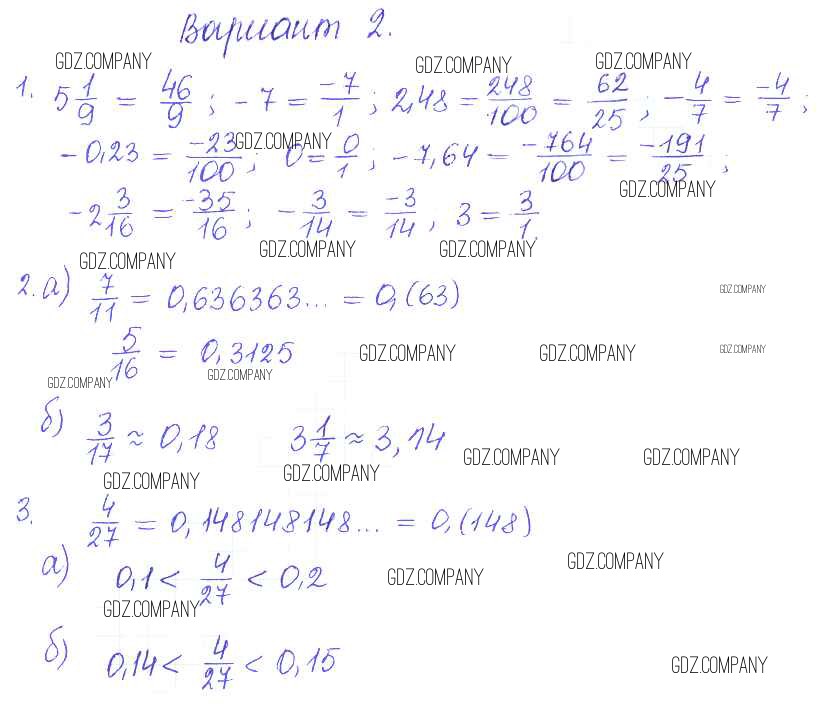 Вариант 2.
GDZ.COMPANY GDZ.COMPANY GDZ.COMPANY
1. 5 1/9 = 46/9 ; -7 = -7/1 ; 2,48 = 248/100 = 62/25 ; -4/7 = -4/7 ;
-0,23 = -23/100 ; 0 = 0/1 ; -7,64 = -764/100 = -191/25 ;
GDZ.COMPANY GDZ.COMPANY
-2 3/16 = -35/16 ; -3/14 = -3/14 , 3 = 3/1
GDZ.COMPANY GDZ.COMPANY GDZ.COMPANY
2. а) 7/11 = 0,636363... = 0,(63)
GDZ.COMPANY
5/16 = 0,3125
GDZ.COMPANY GDZ.COMPANY GDZ.COMPANY
GDZ.COMPANY GDZ.COMPANY
б) 3/17 ≈ 0,18 3 1/7 ≈ 3,14
GDZ.COMPANY GDZ.COMPANY GDZ.COMPANY GDZ.COMPANY
3. 4/27 = 0,148148148... = 0,(148)
а) 0,1 < 4/27 < 0,2
GDZ.COMPANY GDZ.COMPANY
GDZ.COMPANY
б) 0,14 < 4/27 < 0,15
GDZ.COMPANY